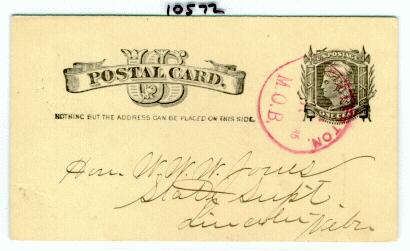 10572
U.S. POSTAGE
POSTAL CARD.
ONE CENT
NOTHING BUT THE ADDRESS CAN BE PLACED ON THIS SIDE.
M.O.B.
Hon. W. W. W. Jones
State Supt.
Lincoln Nebr